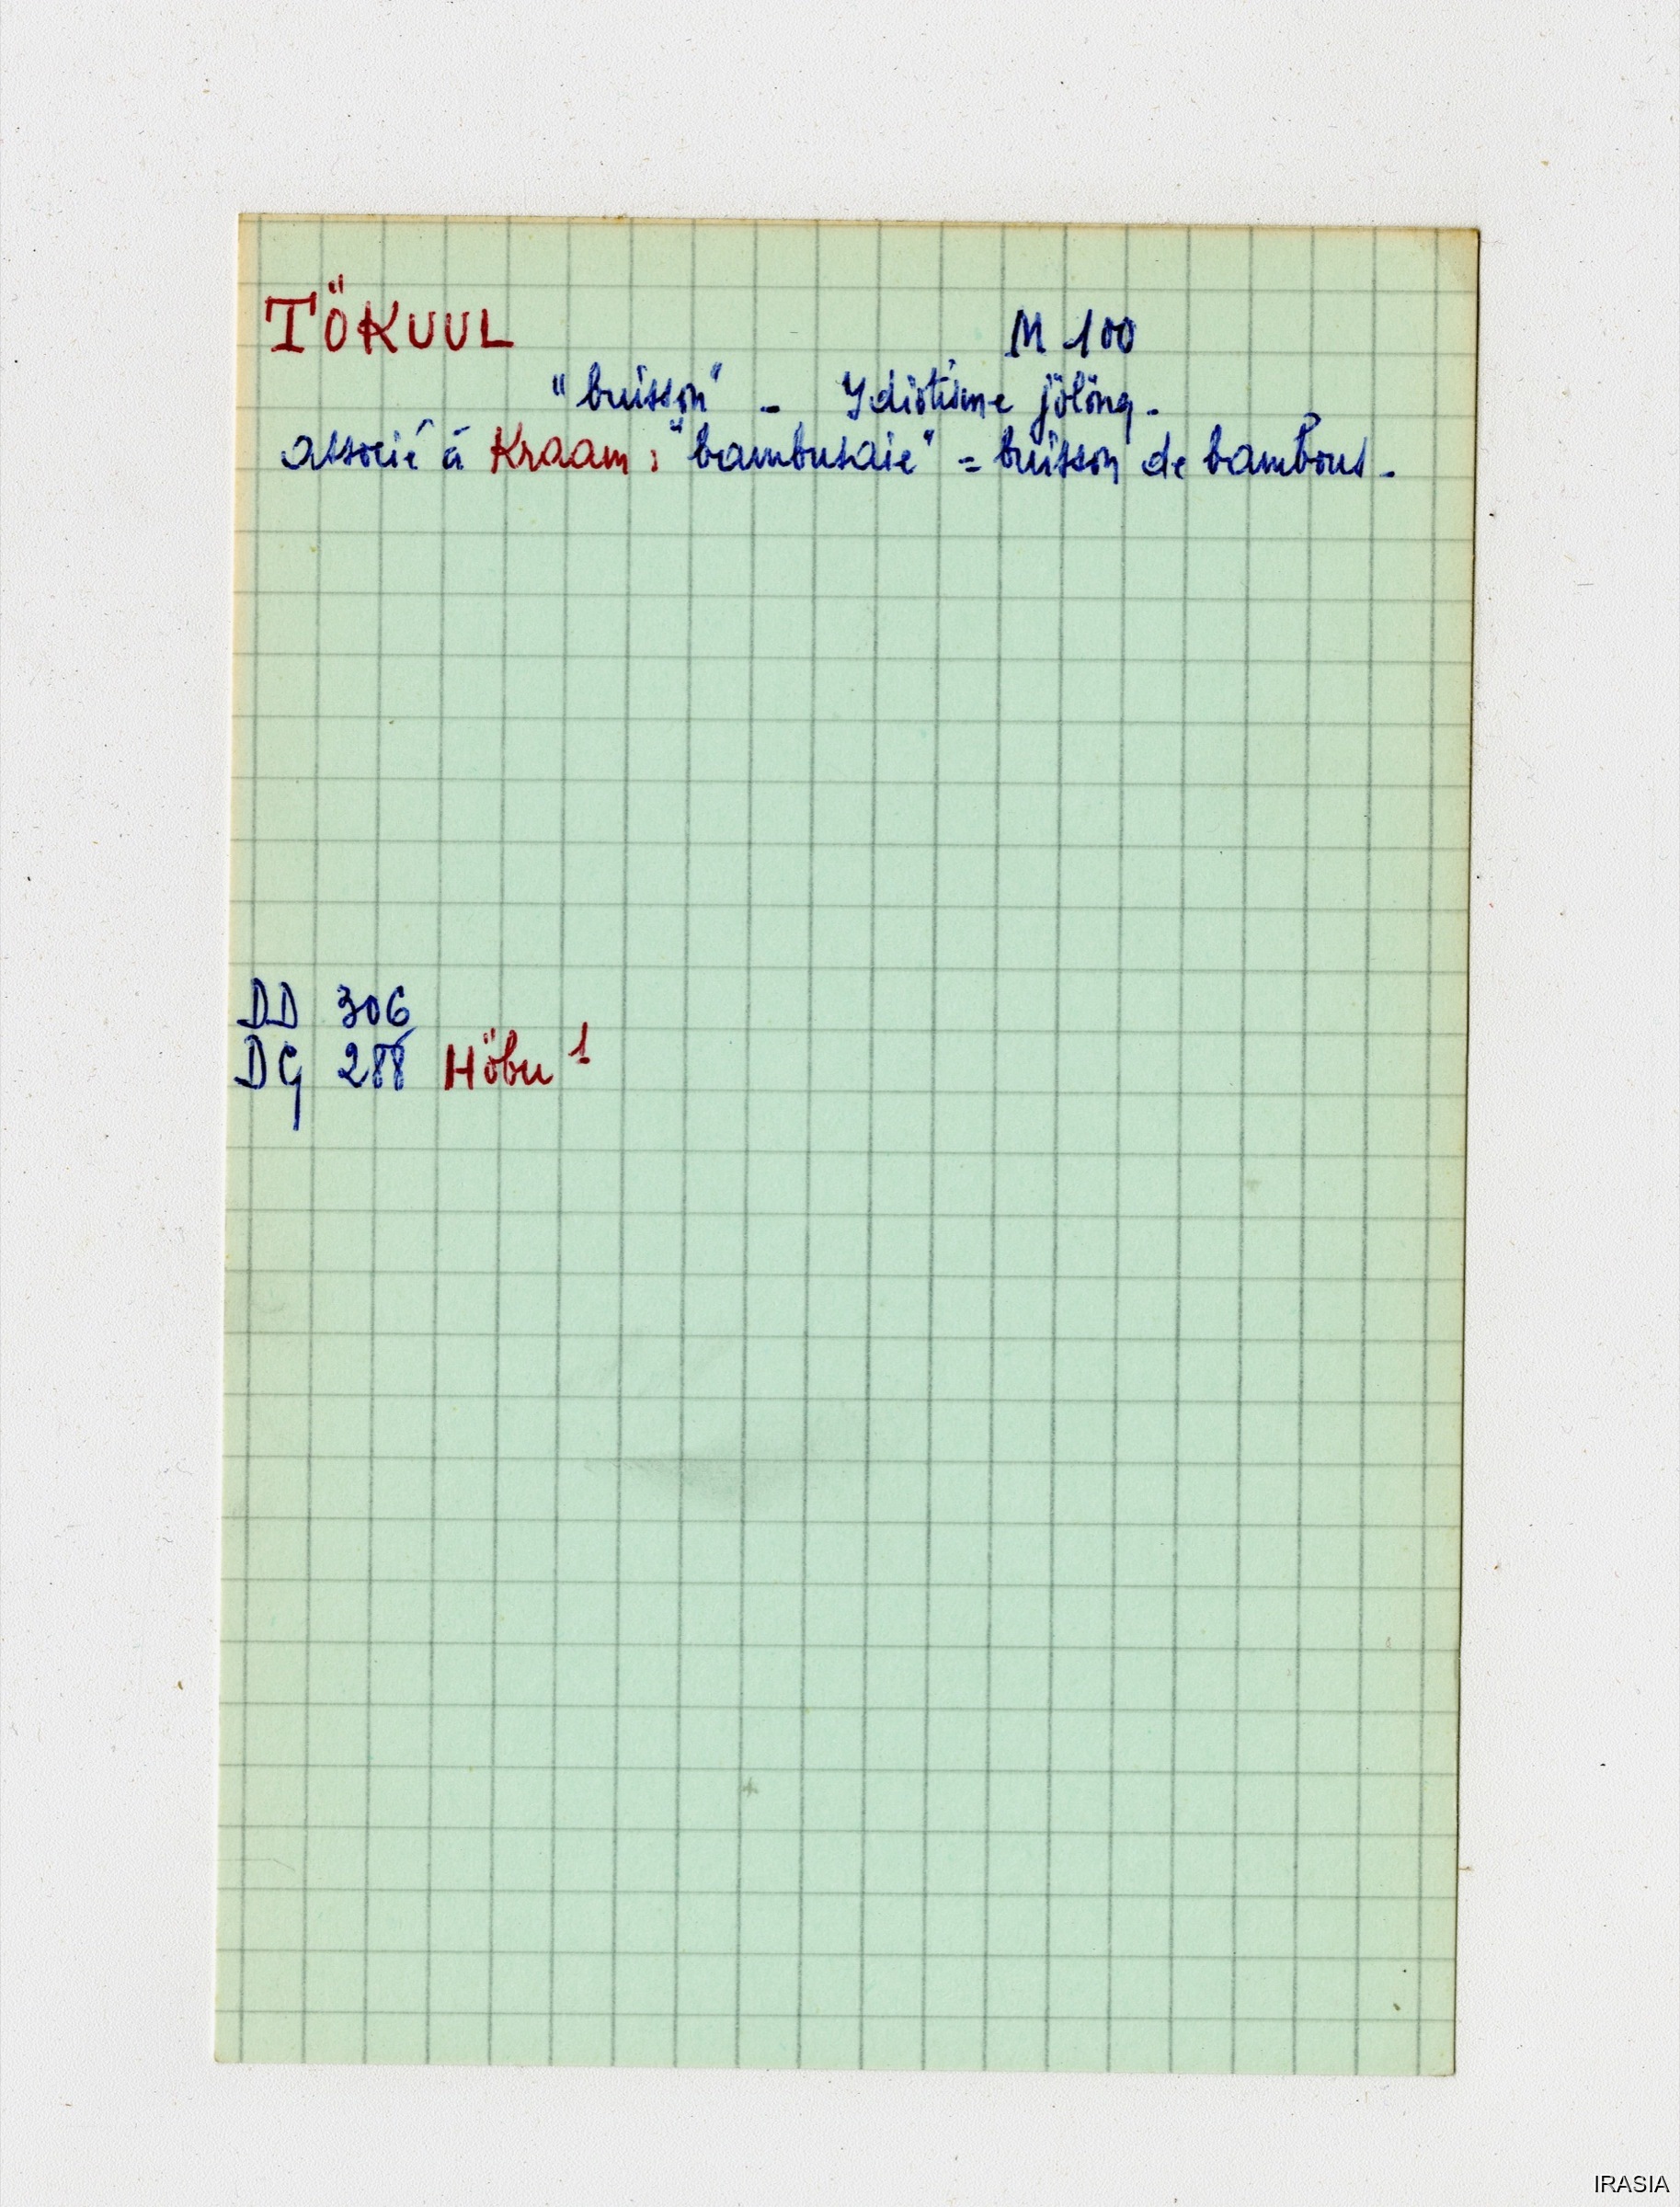 TÖKUUL M 100
"buisson" - Ydiotisme jölöng -
associé à Kraam : "bambusaie" = buisson de bambous -
DD 306
DG 288 Höbu 1
IRASIA